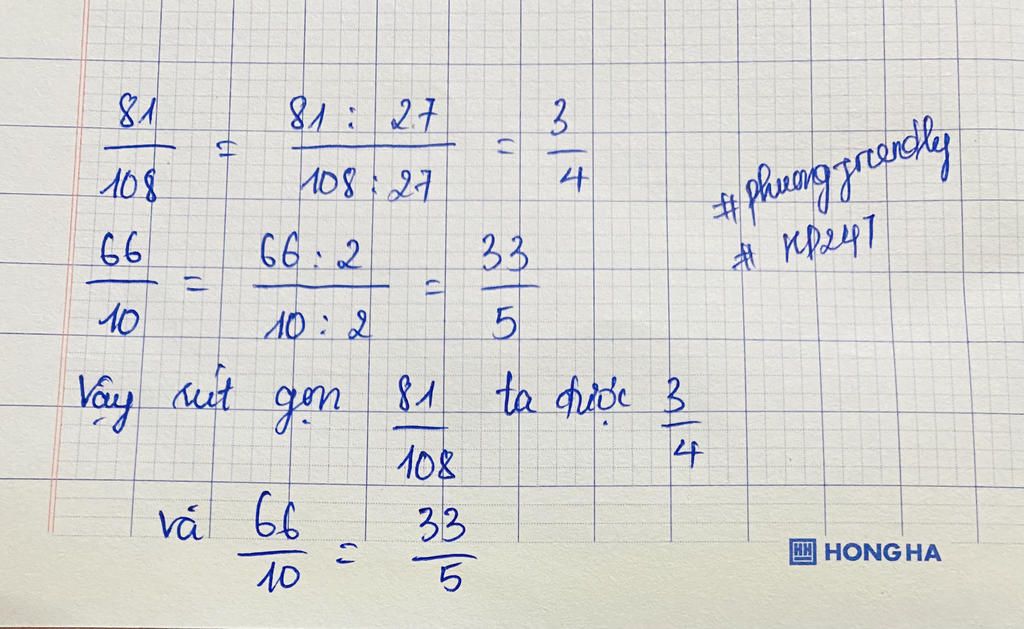 81/108 = 81 : 27/108 : 27 = 3/4
#phuongfriendly
# KP247
66/10 = 66 : 2/10 : 2 = 33/5
Vậy rút gọn 81/108 ta được 3/4
và 66/10 = 33/5
HH HONG HA